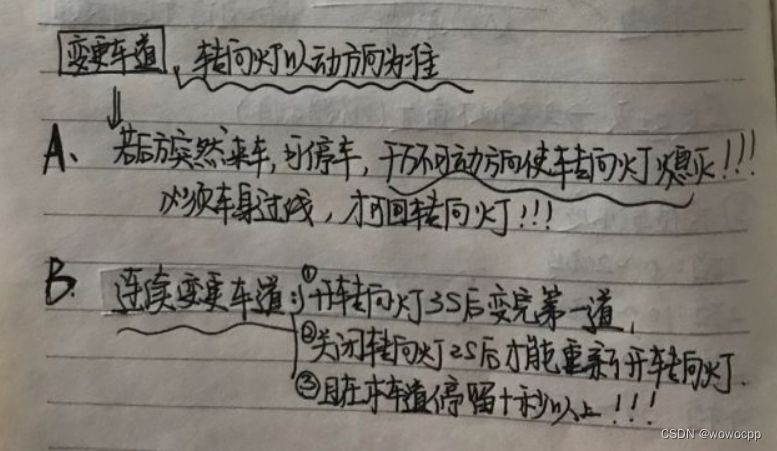 变更车道，转向灯以动方向为准
A、若后方突然来车，可停车，千万不可动方向使车转向灯熄灭!!!
必须车身过线，才可回转向灯!!!
B. 连续变更车道：①开转向灯3S后变完第一道，
②关闭转向灯2S后才能重新开转向灯.
③且在本车道停留十秒以上!!!
CSDN @wowocpp